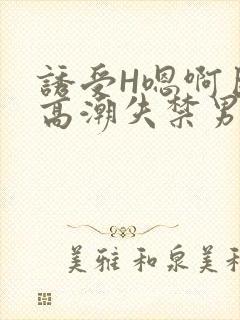 誘受H嗯啊
高潮失禁男
美雅 和泉美